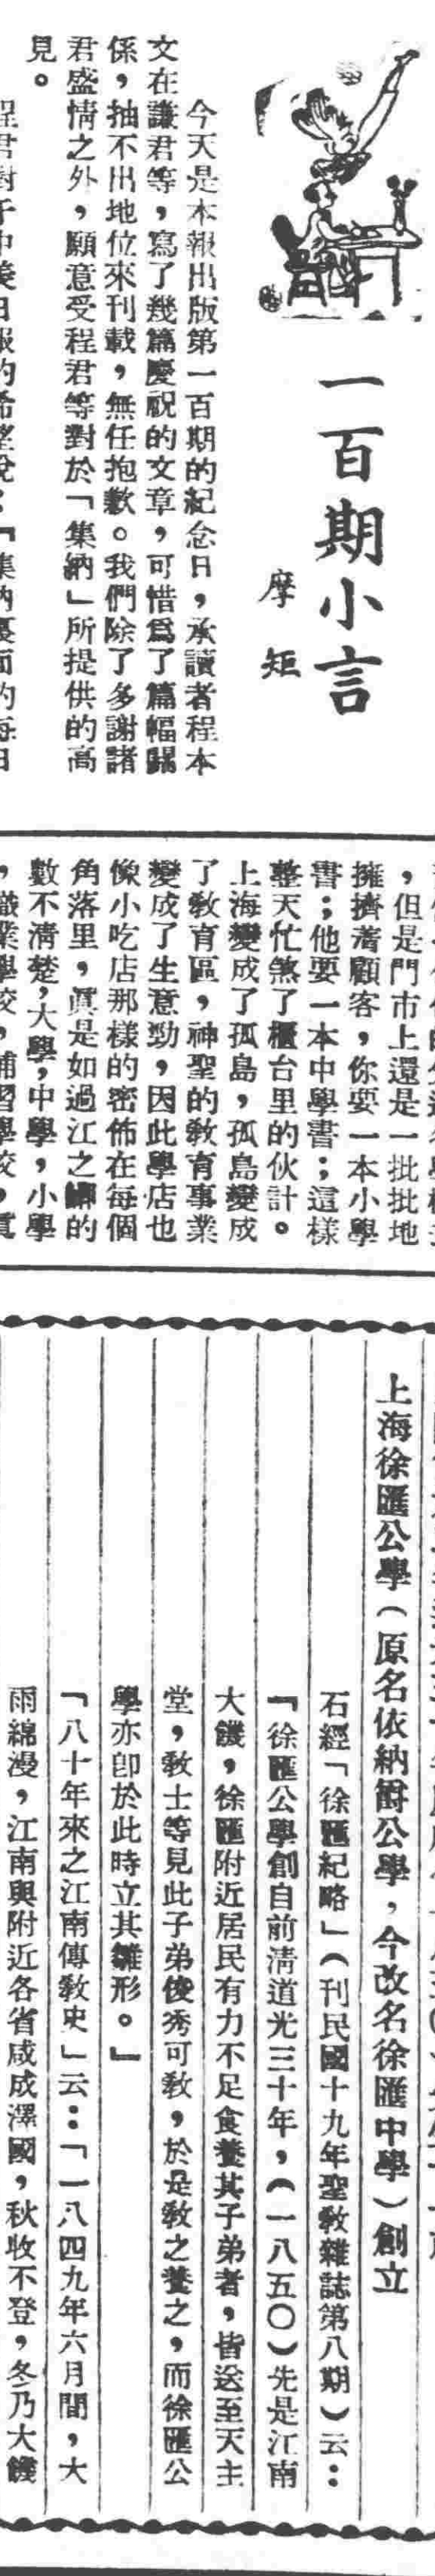 一百期小言
摩矩
今天是本報出版第一百期的紀念日，承讀者程本
文在謙君等，寫了幾篇慶祝的文章，可惜爲了篇幅關
係，抽不出地位來刊載，無任抱歉。我們除了多謝諸
君盛情之外，願意受程君等對於「集納」所提供的高
見。
，但是門市上還是一批批地
擁擠著顧客，你要一本小學
書；他要一本中學書；這樣
整天忙煞了櫃台里的伙計。
上海變成了孤島，孤島變成
了教育區，神聖的教育事業
變成了生意勁，因此學店也
像小吃店那樣的密佈在每個
角落里，眞是如過江之鯽的
數不清楚，大學，中學，小學
，職業學校，補習學校，眞
上海徐匯公學（原名依納爵公學，今改名徐匯中學）創立
石經「徐匯紀略」（刊民國十九年聖教雜誌第八期）云：
「徐匯公學創自前清道光三十年，（一八五〇）先是江南
大饑，徐匯附近居民有力不足食養其子弟者，皆送至天主
堂，教士等見此子弟俊秀可教，於是教之養之，而徐匯公
學亦卽於此時立其雛形。」
「八十年來之江南傳教史」云：「一八四九年六月間，大
雨綿漫，江南與附近各省咸成澤國，秋收不登，冬乃大饑